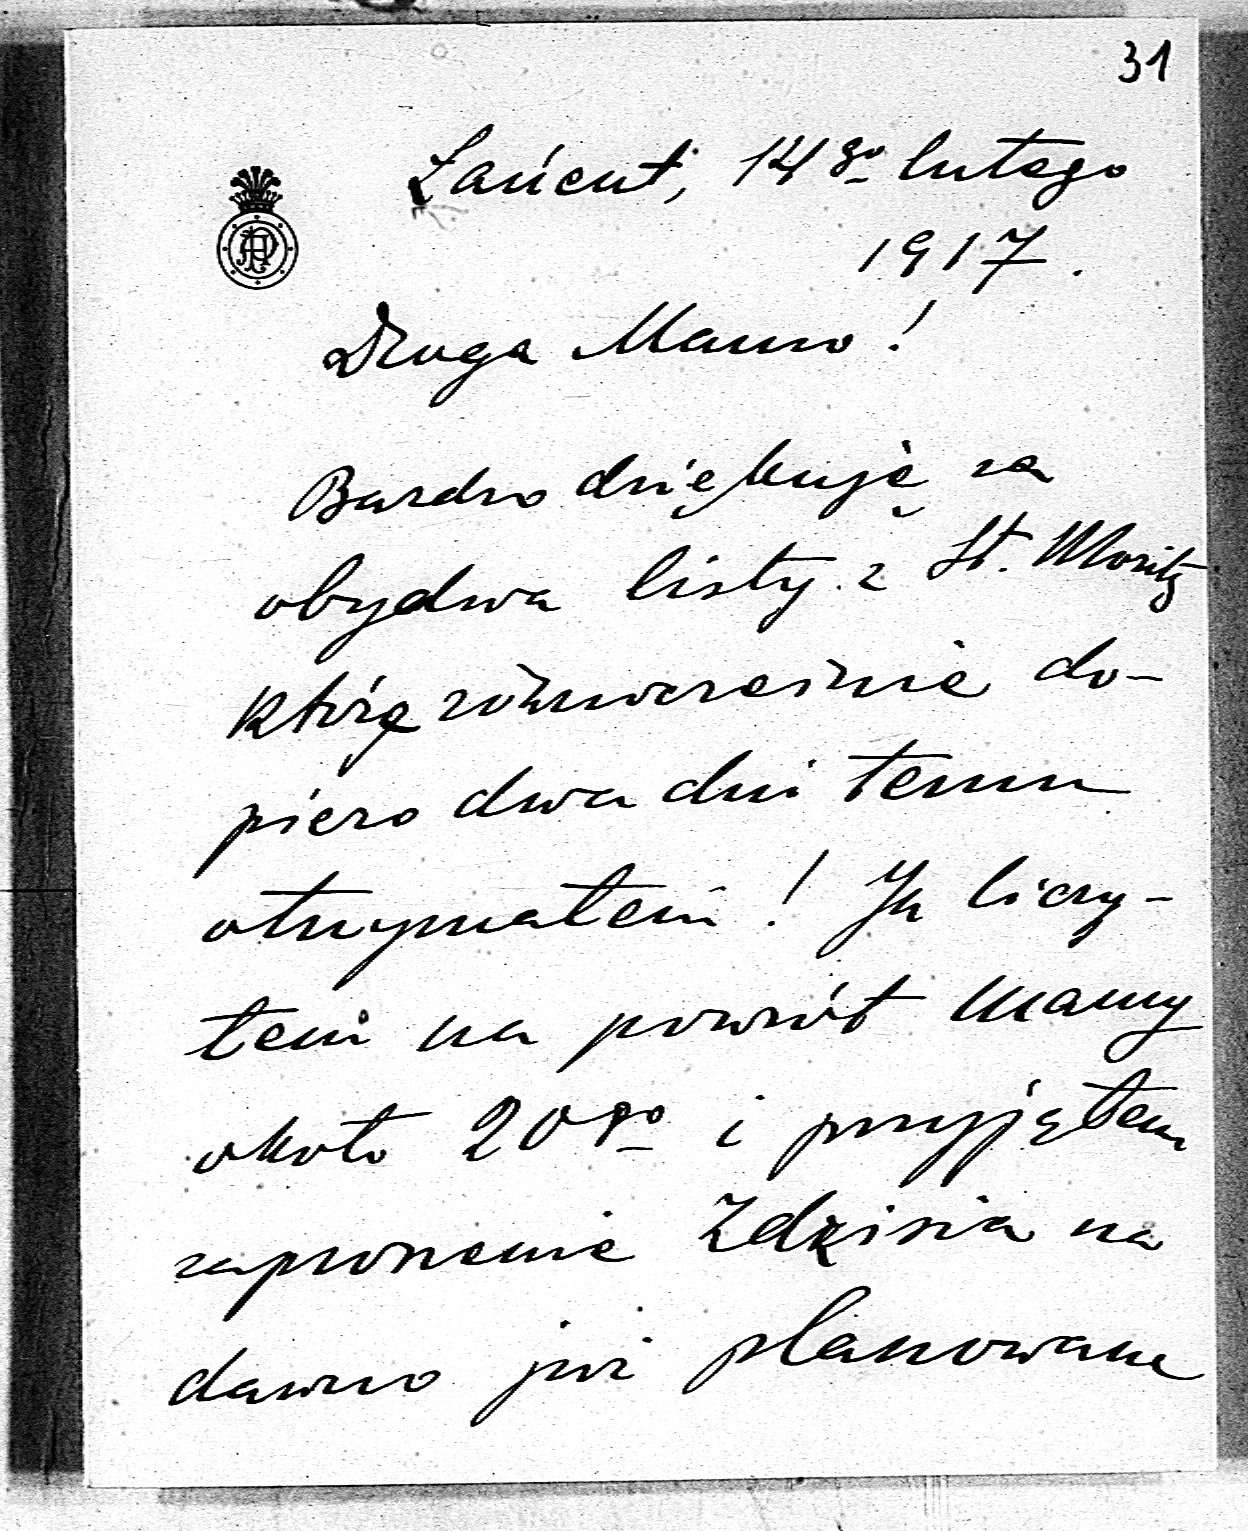 31
Łańcut, 14go lutego
1917.
Droga Mamo!
Bardzo dziękuję za
obydwa listy z St. Moritz
którę równocześnie do-
piero dwa dni temu
otrzymałem! Ja liczy-
łem na powrót Mamy
około 20go i przyjęłem
zaproszenie Zdzisia na
dawno już planowane